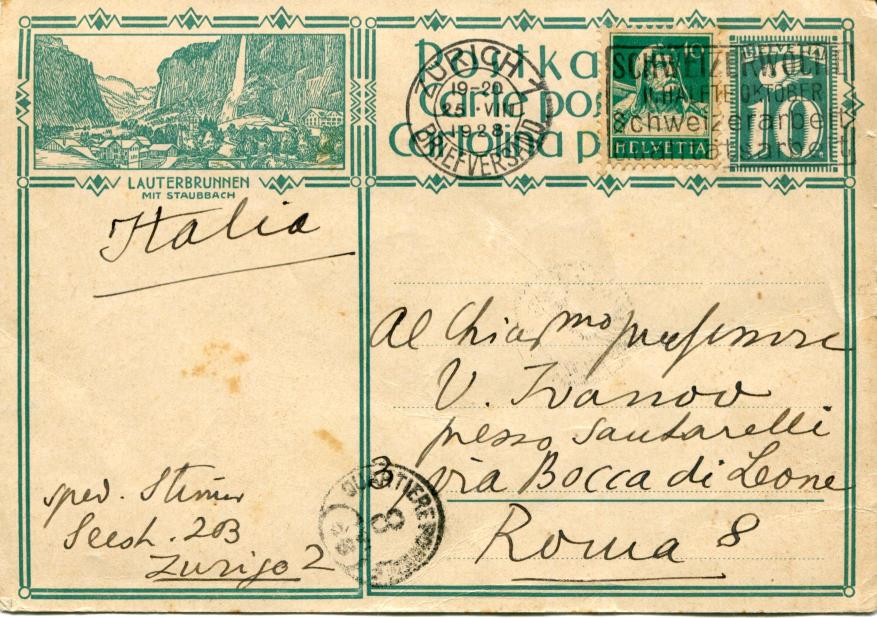 LAUTERBRUNNEN
MIT STAUBBACH
Postka
Carte po
Cartolina p
ZÜRICH 7
19-20
25 VIII
1928
BRIEFVERSAND
10
HELVETIA
HELVETIA
10
SCHWEIZERWOCHE
II. HÄLFTE OKTOBER
Schweizerarbeit
Qualitätsarbeit
Italia
Al Chiarmo professore
V. Ivanov
presso Santarelli
via Bocca di Leone
Roma 8
sped.
Seestr. 203
Zurigo 2
QUARTIERE
8
28